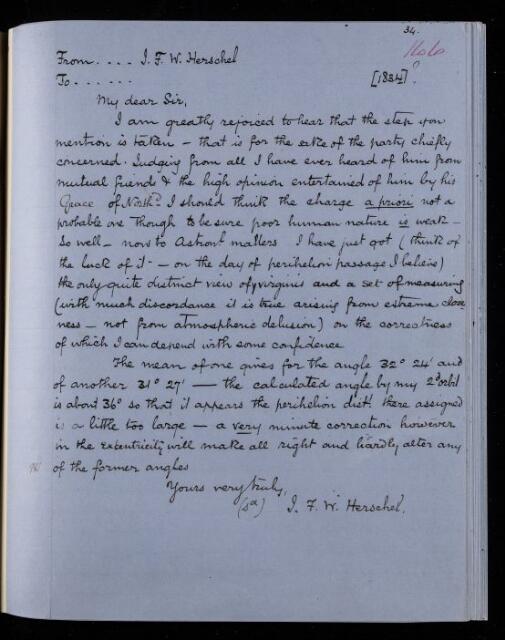 34.
From .... J. F. W. Herschel
To ......
[1834]?
My dear Sir,
I am greatly rejoiced to hear that the step you
mention is taken – that is for the sake of the party chiefly
concerned. Judging from all I have ever heard of him from
mutual friends & the high opinion entertained of him by his
Grace of North.d I should think the charge a priori not a
probable one though to be sure poor human nature is weak –
So well – now to Astron.l matters I have just got (think of
the luck of it – on the day of perihelion passage I believe)
the only quite distinct view of γ virginis and a set of measuring
(with much discordance it is true arising from extreme close
ness – not from atmospheric delusion) on the correctness
of which I can depend with some confidence
The mean of one gives for the angle 32° 24' and
of another 31° 27' — the calculated angle by my 2d orbit
is about 36° so that it appears the perihelion dist. there assigned
is a little too large – a very minute correction however
in the excentricity will make all right and hardly alter any
of the former angles
Yours very truly,
(sd) J. F. W. Herschel.